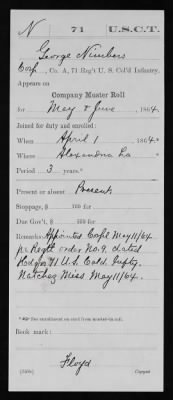 N 71 U.S.C.T.
George Nimbers
Corp, Co. A, 71 Reg't U. S. Col'd Infantry.
Appears on
Company Muster Roll
for May & June, 1864.
Joined for duty and enrolled:
When April 1, 1864*
Where Alexandria La
Period 3 years.*
Present or absent Present
Stoppage, $ 100 for
Due Gov't, $ 100 for
Remarks: Appointed Corpl May 11/64
pr Regtl order No. 9. dated
Hdqrs 71 U.S. Cold. Infty.
Natchez Miss May 11/64.
*See enrollment on card from muster-in roll.
Book mark:
Floyd
Copyist.